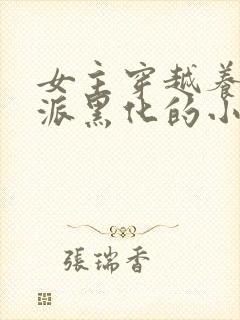 女主穿越养
派黑化的小
張瑞香